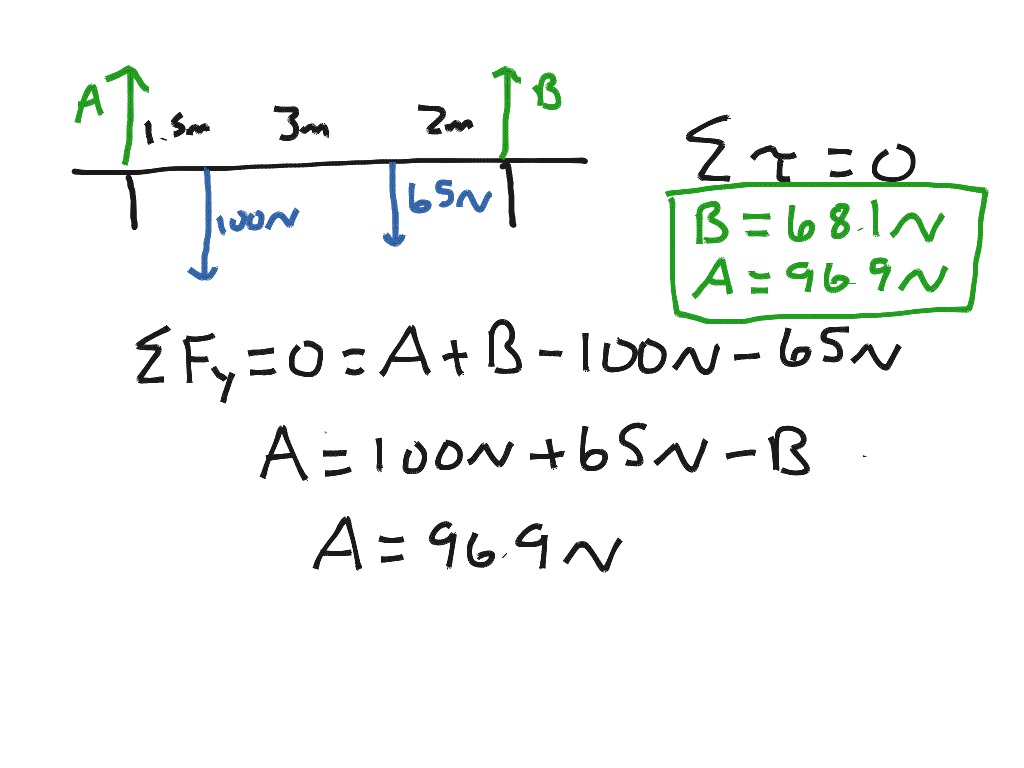 A 1.5m 3m 2m B
100N 65N
Στ = 0
B = 68.1N
A = 96.9N
ΣFy = 0 = A + B - 100N - 65N
A = 100N + 65N - B
A = 96.9N